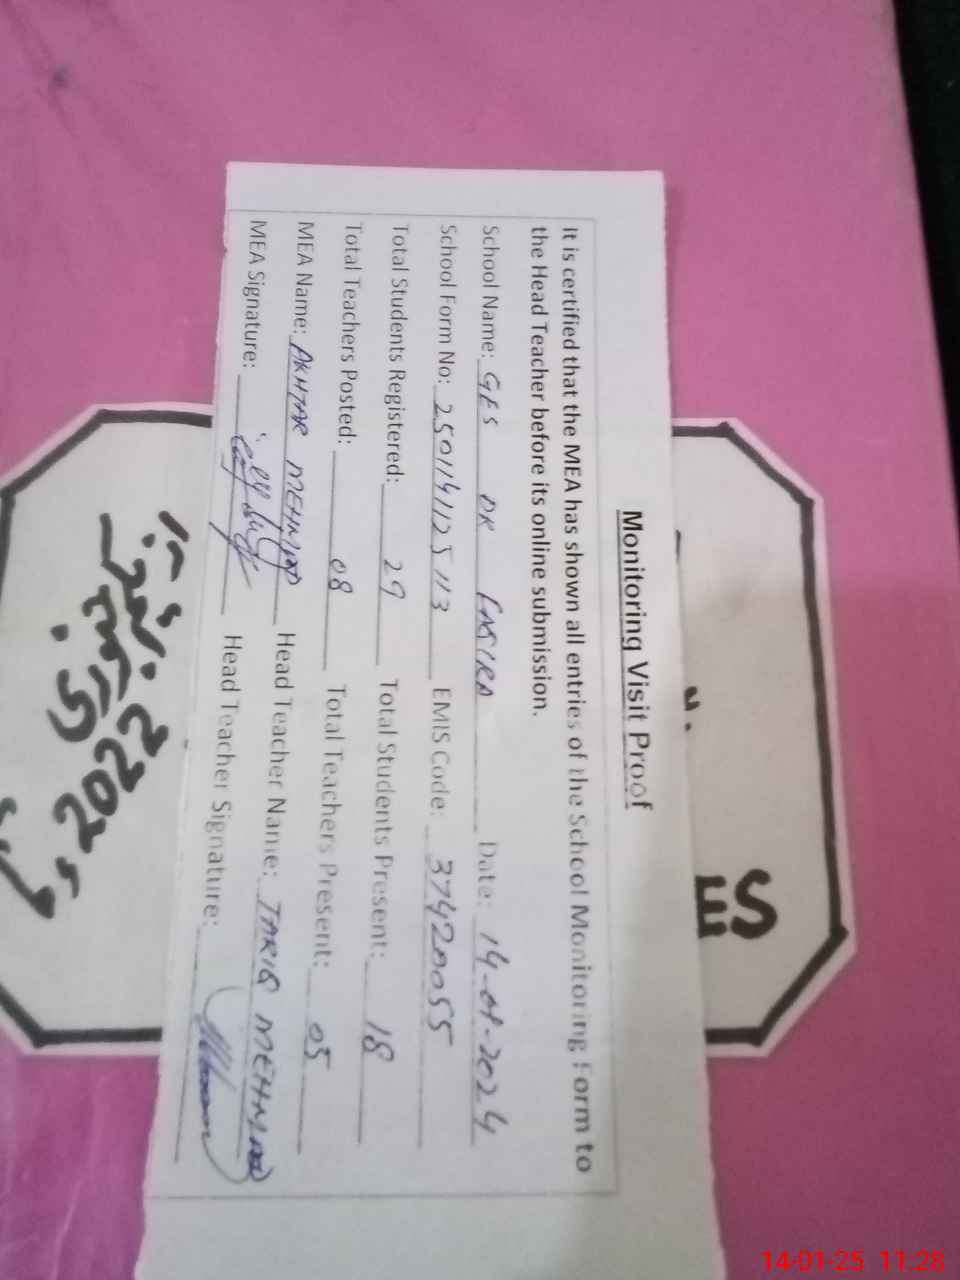 Monitoring Visit Proof
It is certified that the MEA has shown all entries of the School Monitoring Form to
the Head Teacher before its online submission.
School Name: GES DK Date: 14-01-2024
School Form No: 2501141125113 EMIS Code: 37420055
Total Students Registered: 29 Total Students Present: 18
Total Teachers Posted: 08 Total Teachers Present: 05
MEA Name: AKHTAR MEHMOOD Head Teacher Name: TARIQ MEHMOOD
MEA Signature: Head Teacher Signature:
ES
جنوری
2022
14-01-25 11:28